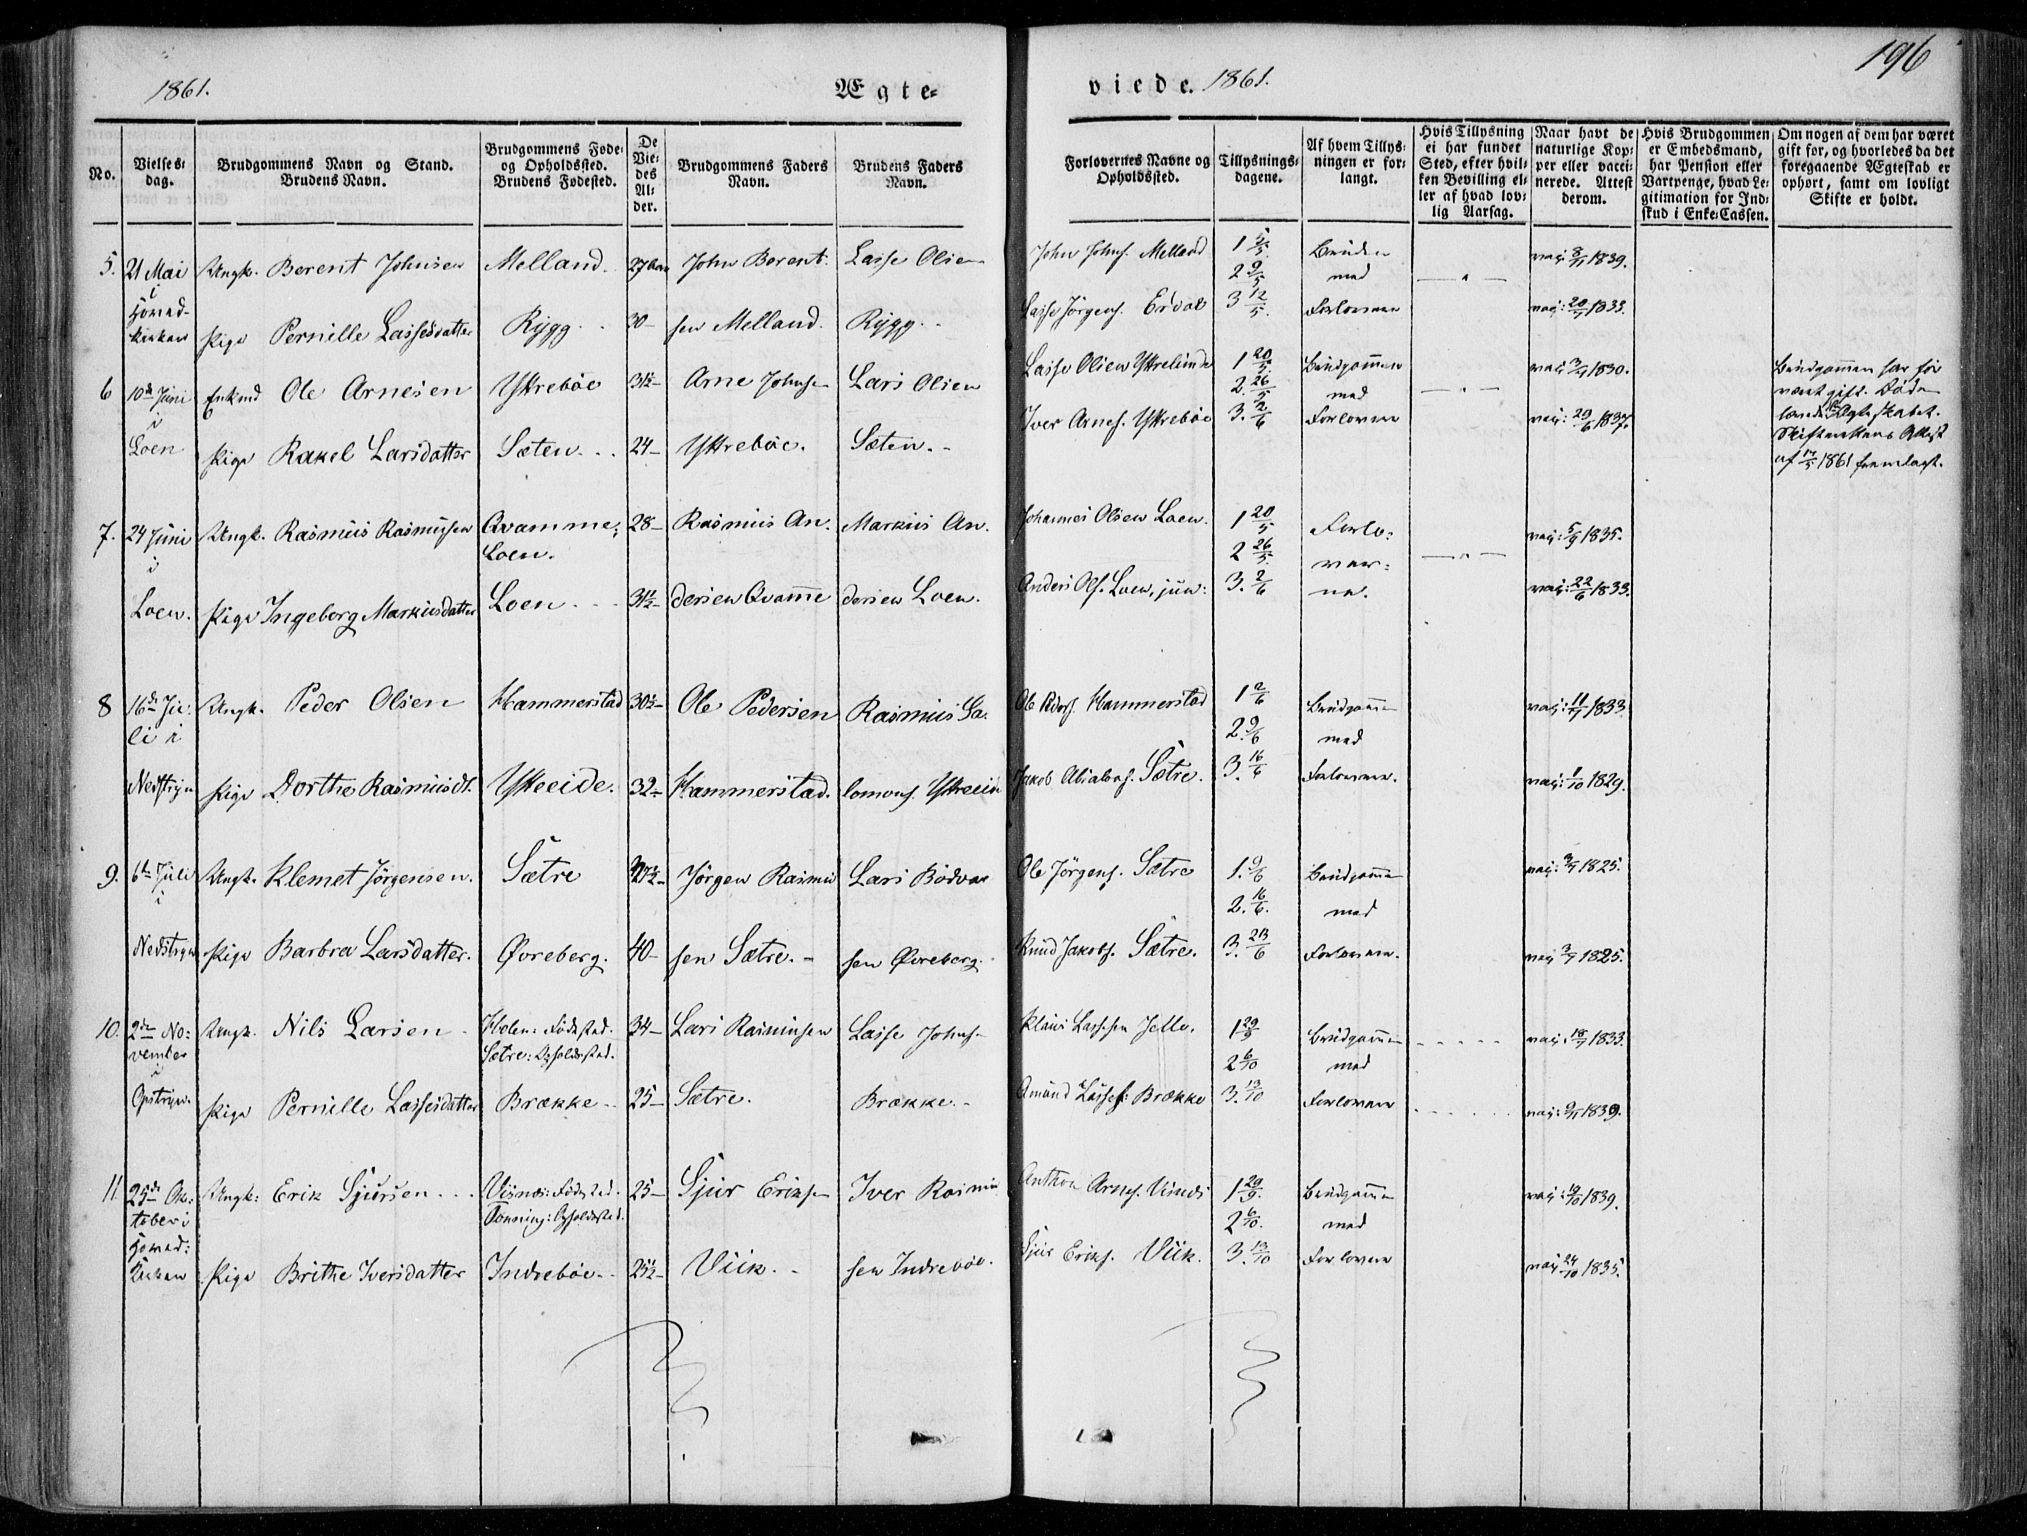 1861.
Ægte-
viede. 1861.
196
No.
Vielses-
dag.
Brudgommens Navn og Stand.
Brudens Navn.
Brudgommens Føde-
og Opholdssted.
Brudens Fødested.
De
Vie-
des
Al-
der.
Brudgommens Faders
Navn.
Brudens Faders
Navn.
Forlovernes Navne og
Opholdssted.
Tillysnings-
dagene.
Af hvem Tillys-
ningen er for-
langt.
Hvis Tillysning
ei har fundet
Sted, efter hvil-
ken Bevilling el-
ler af hvad lov-
lig Aarsag.
Naar havt de
naturlige Kop-
per eller vacci-
nerede. Attest
derom.
Hvis Brudgommen
er Embedsmand,
har Pension eller
Vartpenge, hvad Le-
gitimation for Ind-
skud i Enke-Cassen.
Om nogen af dem har været
gift før, og hvorledes da det
foregaaende Ægteskab er
ophørt, samt om lovligt
Skifte er holdt.
5. 21 Mai Ungk. Berent Johnsen Melland. 27 John Berent- Lasse Olsen John Johns. Melland 1 5/5. Bruden vac: 8/11 1839.
i 2 9/5 med
Hoved- Lasse Jörgens. Erdal 3 12/5. Forloveren vac: 20/7 1833.
kirken Pige Pernille Lassesdatter Rygg. 30 sen Melland. Rygg.
6 10de Juni Enkmd Ole Arnesen Yttrebøe 31½ Arne Johnsen Lars Olsen Lasse Olsen Yttrelunde 1 20/5 Brudgommen vac: 3/9 1830. Brudgommen har før
i 2. 26/5 med været gift. Døde
Iver Arnes. Yttrebøe 3. 2/6 Forloveren vac: 29/6 1837. Ægteskabet.
Loen Pige Rakel Larsdatter Sæten. 24 Yttrebøe. Sæten. Skifterettens Attest
af 17/5 1861 fremlagt.
7. 24 Juni Ungk. Rasmus Rasmusen Qvamme- 28 Rasmus An- Markus An- Johannes Olsen Loen. 1 20/5 Forlo- vac: 5/9 1835.
i Loen. 2 26/5. ver-
Loen. Pige Ingeborg Markusdatter Loen 31½ dersen Qvamme dersen Loen. Anders Ols. Loen, jun: 3. 2/6 ne. vac: 22/6 1833.
8 16de Ju- Ungk. Peder Olsen Hammerstad 30½ Ole Pedersen Rasmus Sa- Ole Peders. Hammerstad 1 2/6 Brudgommen vac: 11/7 1833.
li i 2. 9/6 med
Nedstryn Pige Dorthe Rasmusdt. Yttreeide. 32 Hammerstad. lomons. Yttreeide Jakob Abrahams. Sætre. 3. 16/6 Forloveren. vac: 1/10 1829.
9. 6te Juli Ungk. Klemet Jørgensen. Sætre 27½ Jörgen Rasmus Lars Bødvar Ole Jörgens. Sætre 1. 9/6 Brudgommen vac: 3/7 1825.
i 2. 16/6. med
Nedstryn Pige Barbra Larsdatter. Øvreberg. 40 sen Sætre. sen Øvreberg. Knud Jakobs. Sætre. 3. 23/6 Forloveren. vac: 3/7 1825.
10. 2den No- Ungk. Nils Larsen Holen: Fødested. 34 Lars Rasmusen Lasse Johns. Klaus Lassesen Jelle. 1 29/9 Brudgommen vac: 18/9 1833.
vember Sætre: Opholdssted. 2 6/10 med
i
Opstryn. Pige Pernille Lassesdatter Brække 25 Sætre. Brække. Amund Lasses: Brække 3. 13/10 Forloveren vac: 9/11 1839.
11 25de Ok- Ungk: Erik Sjursen Visnæs: Fødested. 25 Sjur Eriksen Iver Rasmus Anthon Arnes. Vinds 1 29/9. Brudgommen vac: 19/10 1839.
tober i Tonning: Opholdssted. 2 6/10. med
Hoved-
kirken Pige Brithe Iversdatter Indrebøe 25½ Viik. sen Indrebøe. Sjur Eriks. Viik. 3. 13/10 Forloveren vac: 24/10 1835.